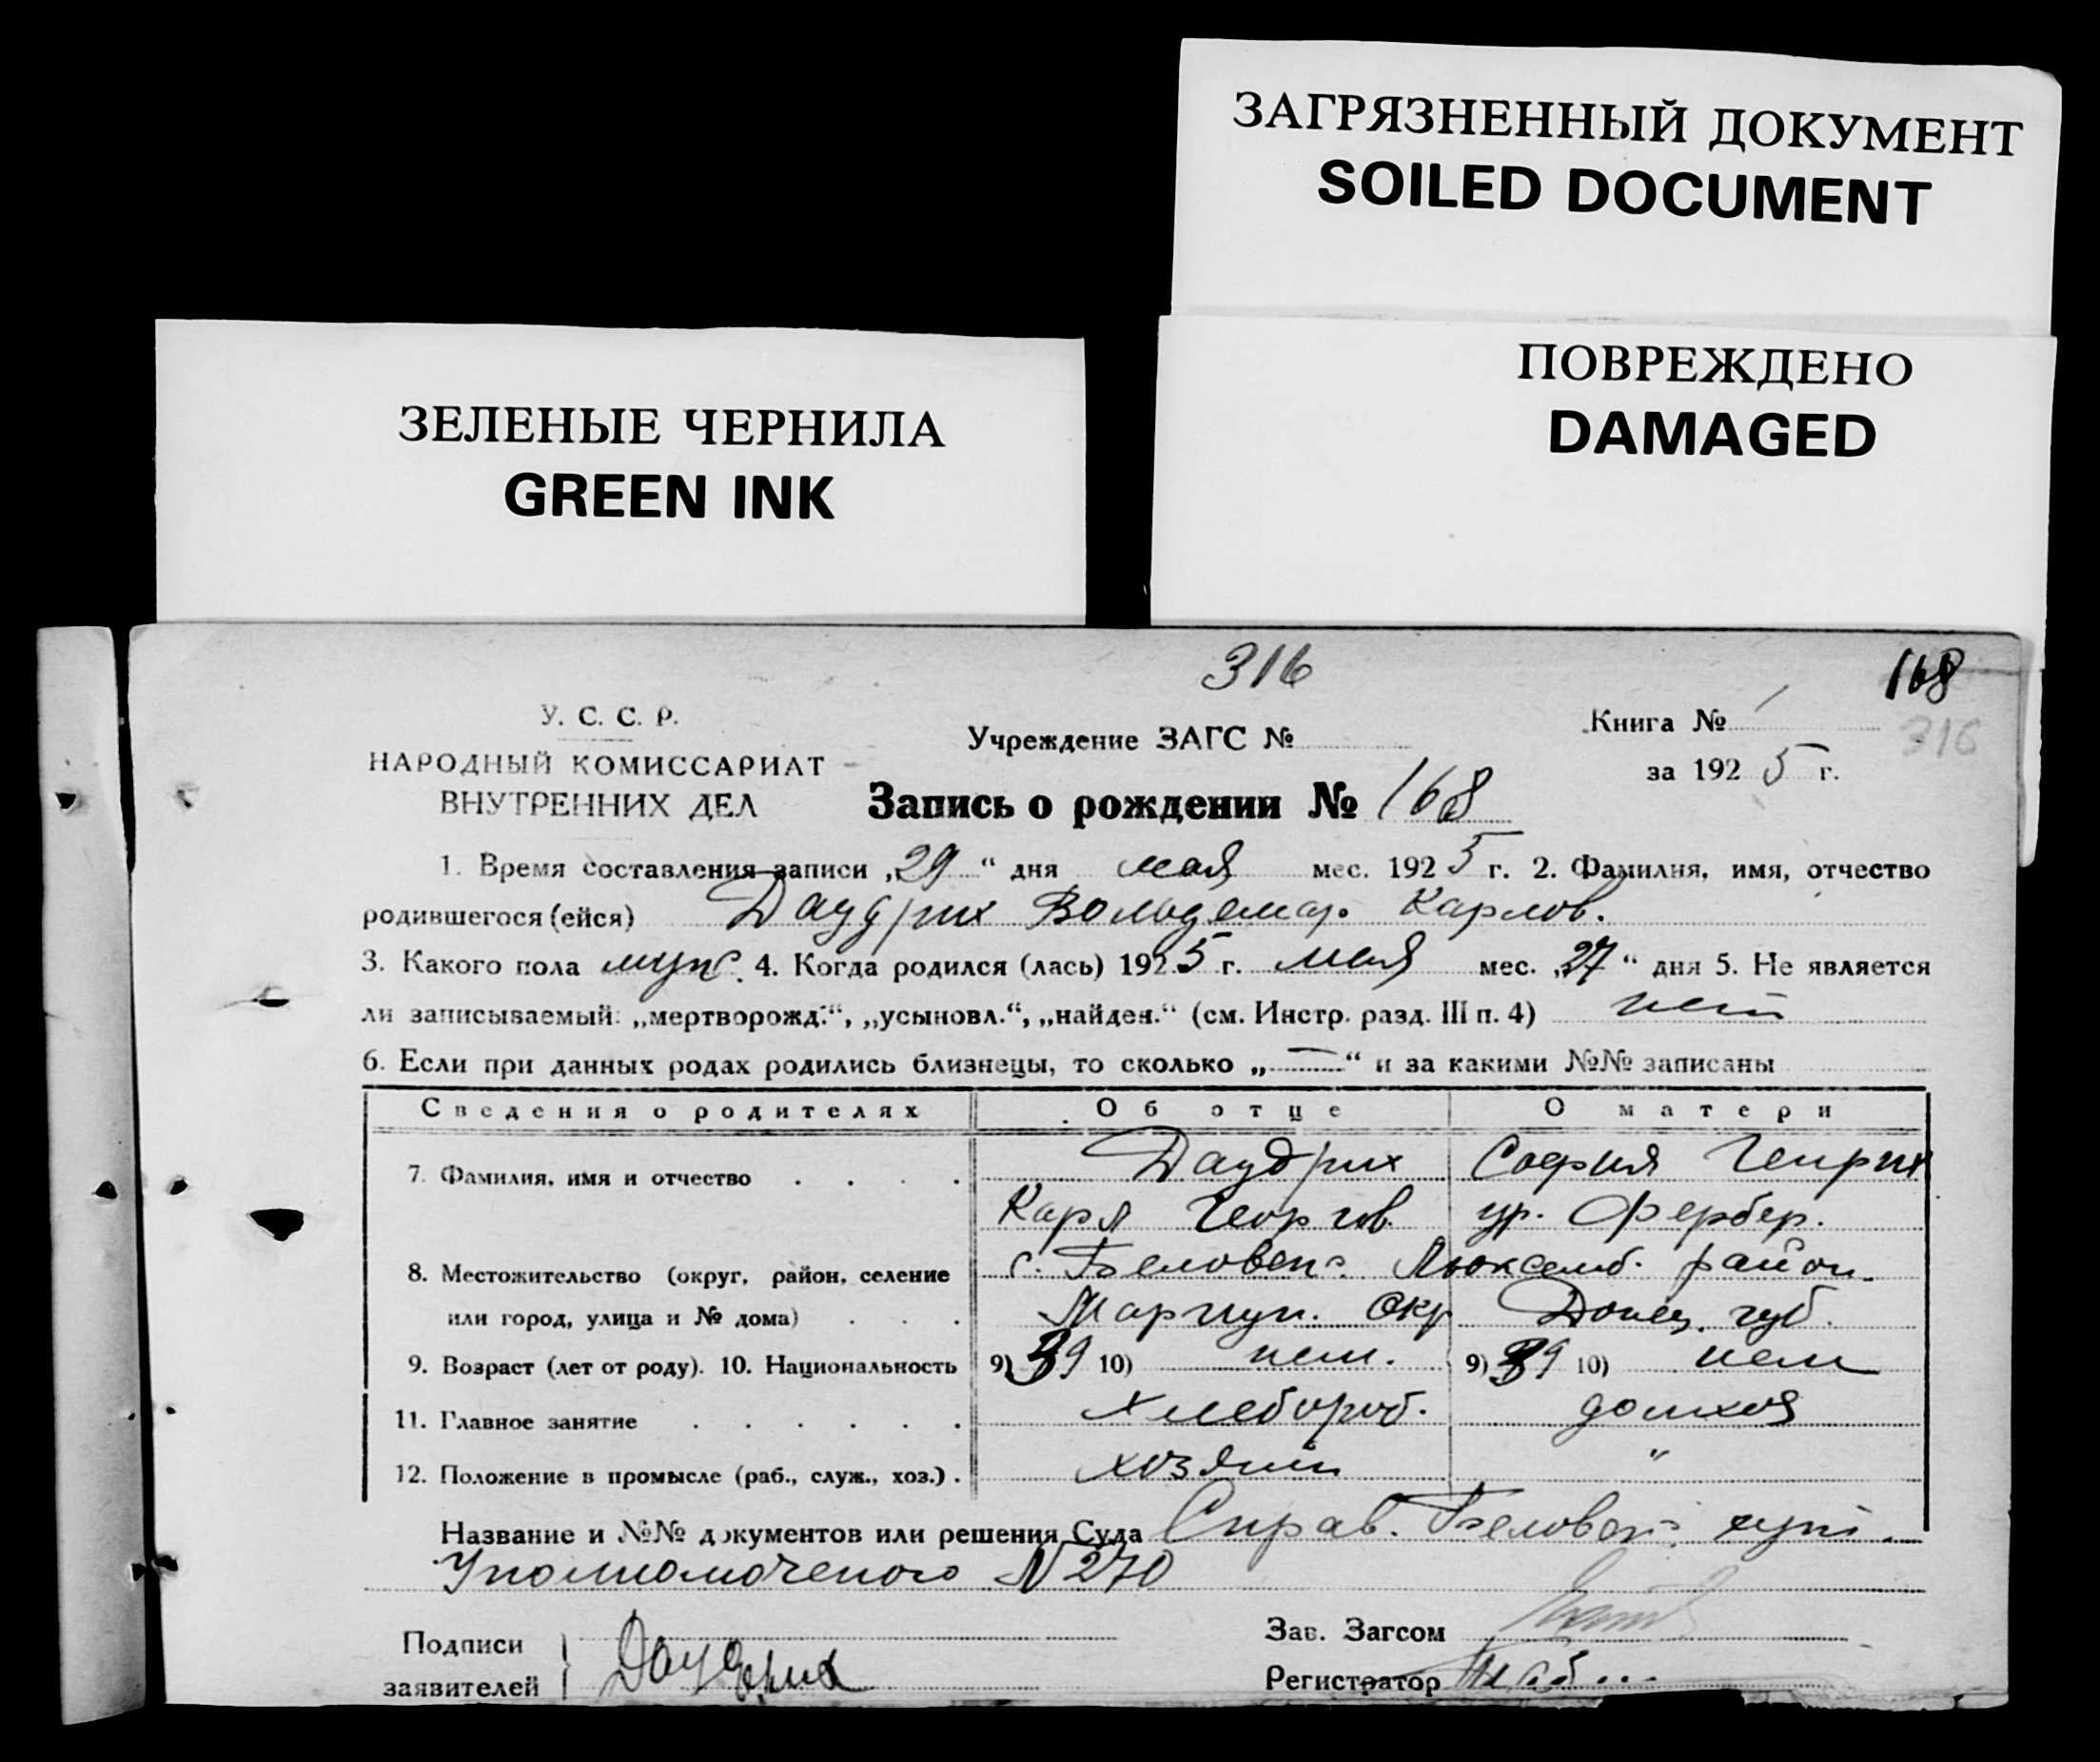 ЗАГРЯЗНЕННЫЙ ДОКУМЕНТ
SOILED DOCUMENT
ПОВРЕЖДЕНО
DAMAGED
ЗЕЛЕНЫЕ ЧЕРНИЛА
GREEN INK
316
168
У. С. С. Р.
НАРОДНЫЙ КОМИССАРИАТ
ВНУТРЕННИХ ДЕЛ
Учреждение ЗАГС №
Книга № 1
316
за 1925 г.
Запись о рождении № 168
1. Время составления записи „29“ дня мая мес. 1925 г. 2. Фамилия, имя, отчество
родившегося (ейся) Даудрих Вольдемар Карлов.
3. Какого пола муж. 4. Когда родился (лась) 1925 г. мая мес. „27“ дня 5. Не является
ли записываемый: „мертворожд.“, „усыновл.“, „найден.“ (см. Инстр. разд. III п. 4) нет
6. Если при данных родах родились близнецы, то сколько „—“ и за какими №№ записаны
Сведения о родителях Об отце О матери
7. Фамилия, имя и отчество Даудрих София Генрих
Карл Георгов. ур. Фербер.
8. Местожительство (округ, район, селение с. Беловеж. Люксемб. район.
или город, улица и № дома) Мариуп. Окр Донец. губ.
9. Возраст (лет от роду). 10. Национальность 9) 39 10) нем. 9) 39 10) нем
11. Главное занятие хлебороб. домхоз
12. Положение в промысле (раб., служ., хоз.) хозяин "
Название и №№ документов или решения Суда Справ. Беловеж.
Уполномоченого N 270
Подписи
заявителей Даудрих
Зав. Загсом
Регистратор